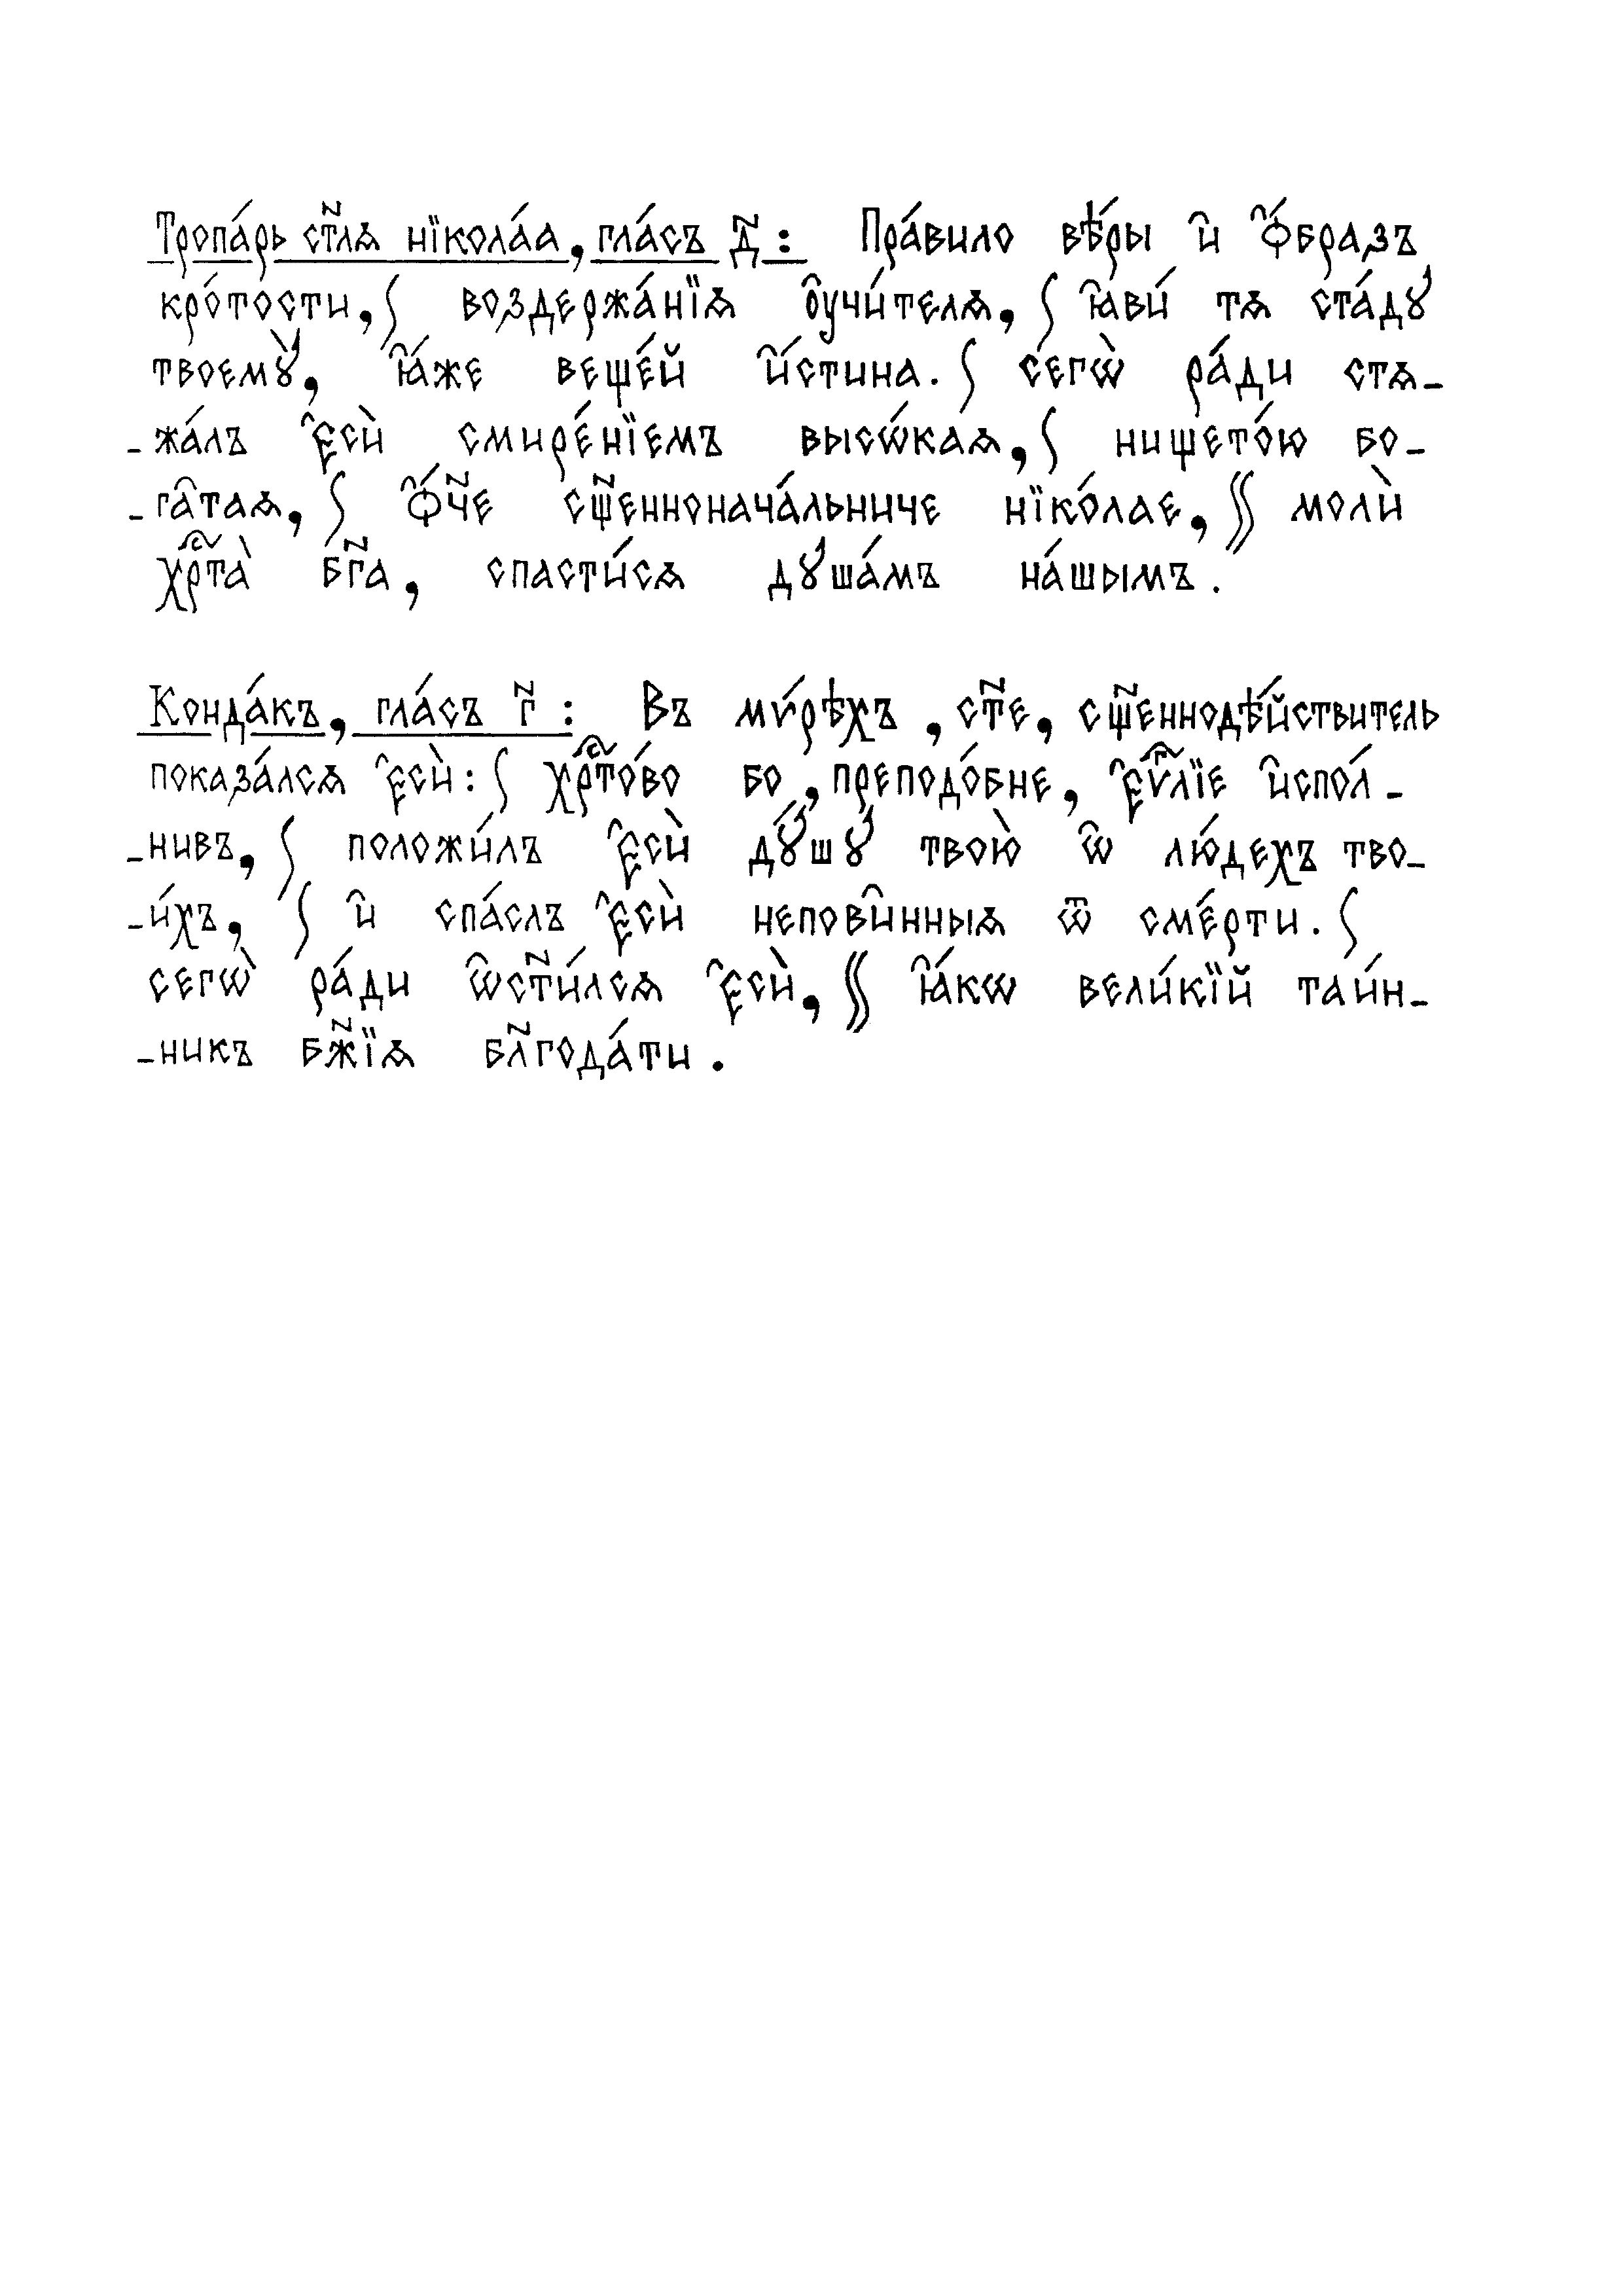 Тропа́рь ст҃лѧ нїкола́а, гла́съ д҃: Пра́вило вѣ́ры и҆ ѻ҆́бразъ
кро́тости, ⟆ воздержа́нїѧ ᲂу҆чи́телѧ, ⟆ ꙗ҆ви́ тѧ ста́дꙋ
твоемꙋ̀, ꙗ҆́же веще́й и҆́стина. ⟆ сегѡ̀ ра́ди стѧ_
_жа́лъ є҆сѝ смире́нїемъ высѡ́каѧ, ⟆ нището́ю бо_
_га̑таѧ, ⟆ ѻ҆́ч҃е сщ҃еннонача́льниче нїко́лае, ⟆⟆ молѝ
хрⷭ҇та̀ бг҃а, спасти́сѧ дꙋша́мъ на́шымъ.
Конда́къ, гла́съ г҃: Въ мѵ́рѣхъ, ст҃е, сщ҃еннодѣ́йствитель
показа́лсѧ є҆сѝ: ⟆ хрⷭ҇то́во бо, преподо́бне, є҆ѵⷢ҇лїе и҆спо́л_
_нивъ, ⟆ положи́лъ є҆сѝ дꙋ́шꙋ твою̀ ѡ҆ лю́дехъ тво_
_и́хъ, ⟆ и҆ спа́слъ є҆сѝ непови̑нныѧ ѿ сме́рти. ⟆
сегѡ̀ ра́ди ѡ҆ст҃и́лсѧ є҆сѝ, ⟆⟆ ꙗ҆́кѡ вели́кїй таи́н_
_никъ бж҃їѧ бл҃года́ти.